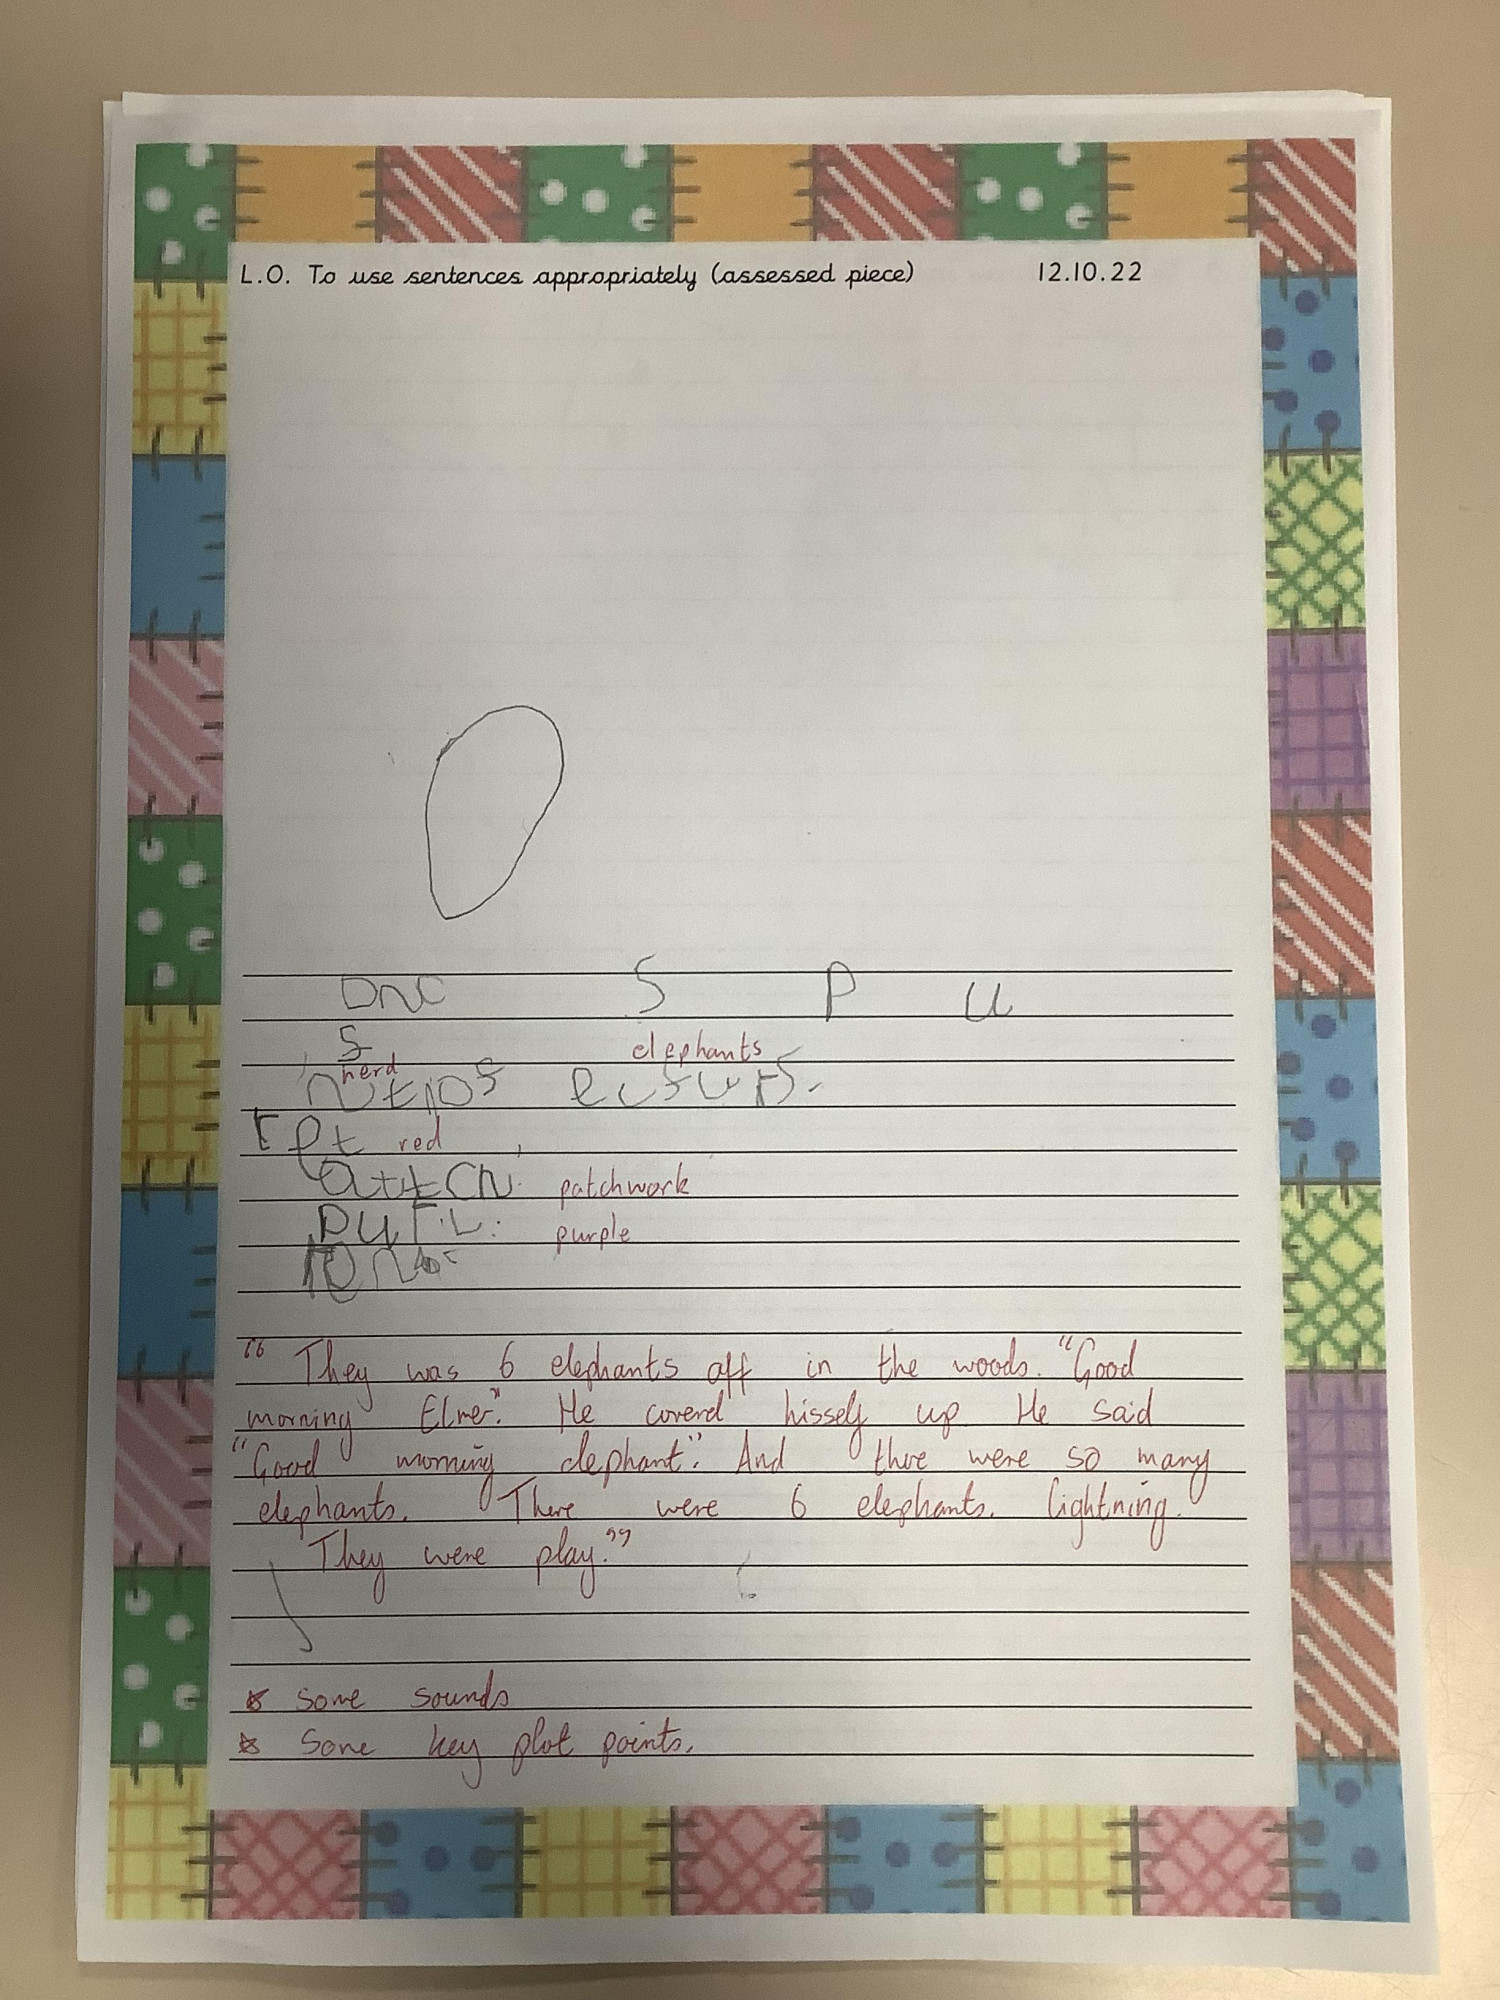 L.O. To use sentences appropriately (assessed piece) 12.10.22
S P U
S
herd elephants
red
patchwork
purple
“ They was 6 elephants off in the woods. “Good
morning Elmer”. He coverd hisself up. He said
“Good morning elephant”. And there were so many
elephants. There were 6 elephants. lightning.
They were play.”
* some sounds
* Some key plot points.